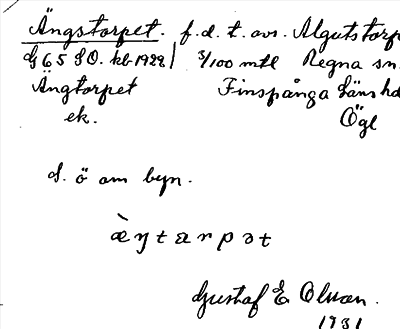 Ängstorpet. f.d. t. avs. Algutstorp
G 65 SO. kb 1922 3/100 mtl Regna sn.
Ängtorpet Finspånga läns hd
ek. Ögl
S. ö om byn.
æ̀ŋtarpət
Gustaf E. Olsson.
1931